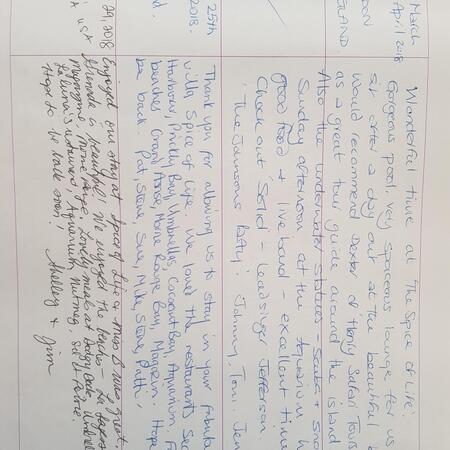 March
Wonderful time at 'The Spice of Life'.
April 2018
Gorgeous pool, very spacious lounge for us
sit after a day out at the beautiful
DON
Would recommend Dexter of 'Henry Safari Tours
GLAND
as a great tour guide around the island
Also the underwater statues - scuba + sno
Sunday afternoon at the Aquarium h
good food + live band - excellent time
Check out 'Solid' - leadsinger Jefferson.
'The Johnsons Psty'. Johnny, Toni, Jen
25th
Thank you for allowing us to stay in your fabulo
2018.
villa Spice of Life. We loved the restaurants Sec
Harbour, Prickly Bay, Umbrellas, Coconut Bay, Aquarium. F
d.
beaches Grand Anse, Morne Rouge Bay, Magazin. Hope
be back. Pat, Steve, Sue, Mike, Steve, Patti
29, 2018
Enjoyed our stay at Spice of Life & Miss B was great.
A USA
Grenada is beautiful! We enjoyed the beaches - La Sagesse
Magazine, Morne Rouge. Lovely meals at Dodgy Dock, Umbrell
La Luna's restaurant, Aquarium, Nutmeg,
Hope to be back soon! Shelley & Jim